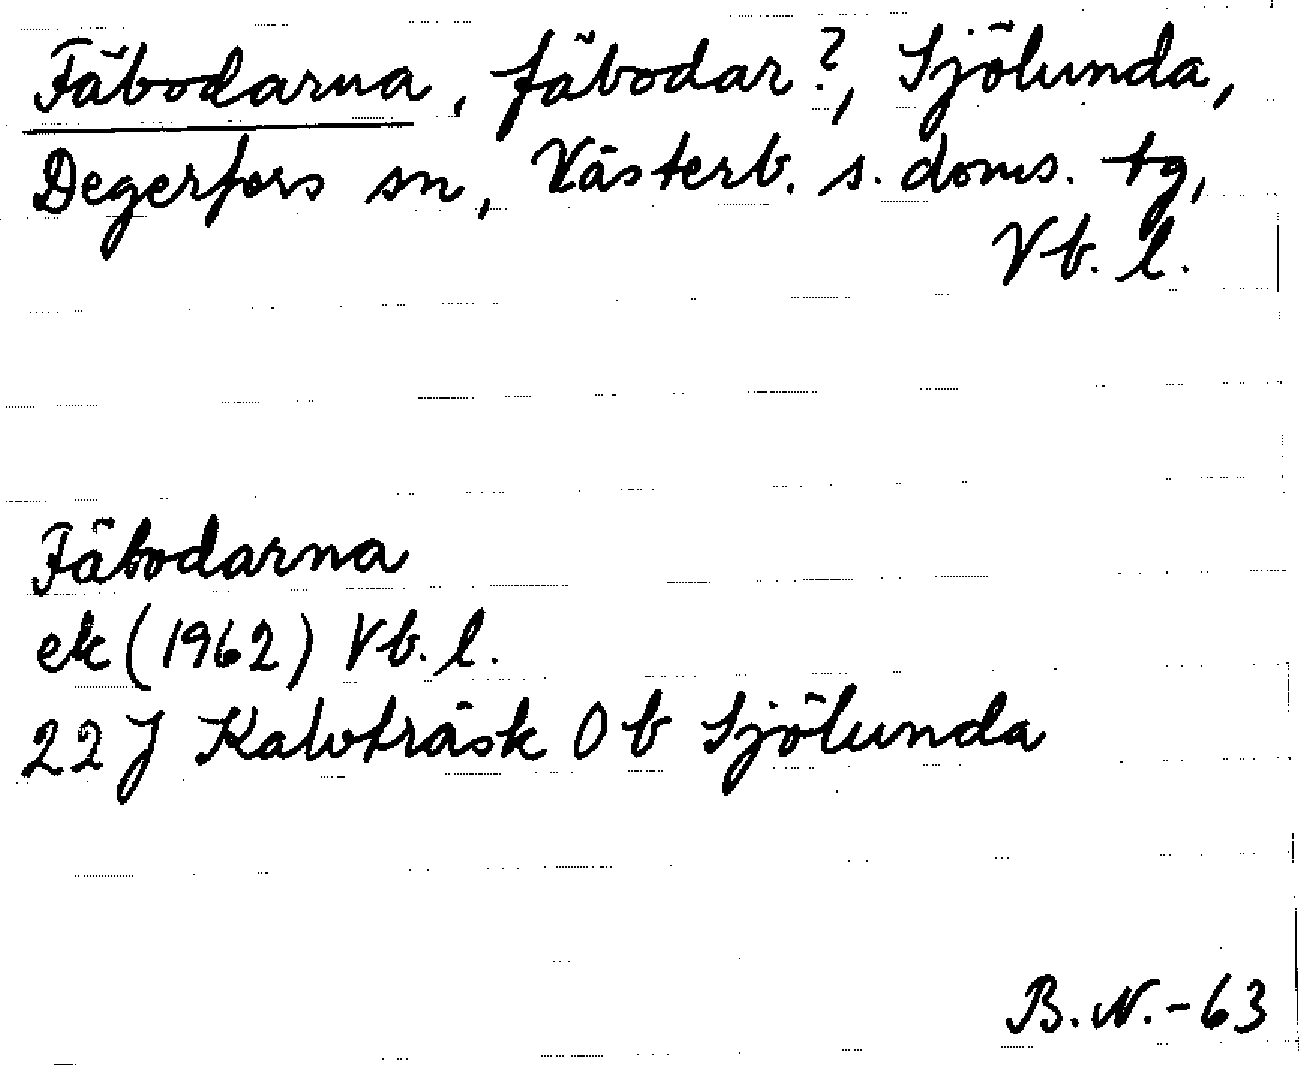 Fäbodarna, fäbodar?, Sjölunda,
Degerfors sn, Västerb. s. doms. tg,
Vb. l.
Fäbodarna
ek (1962) Vb. l.
22 J Kalvträsk 0 b Sjölunda
B.N.-63